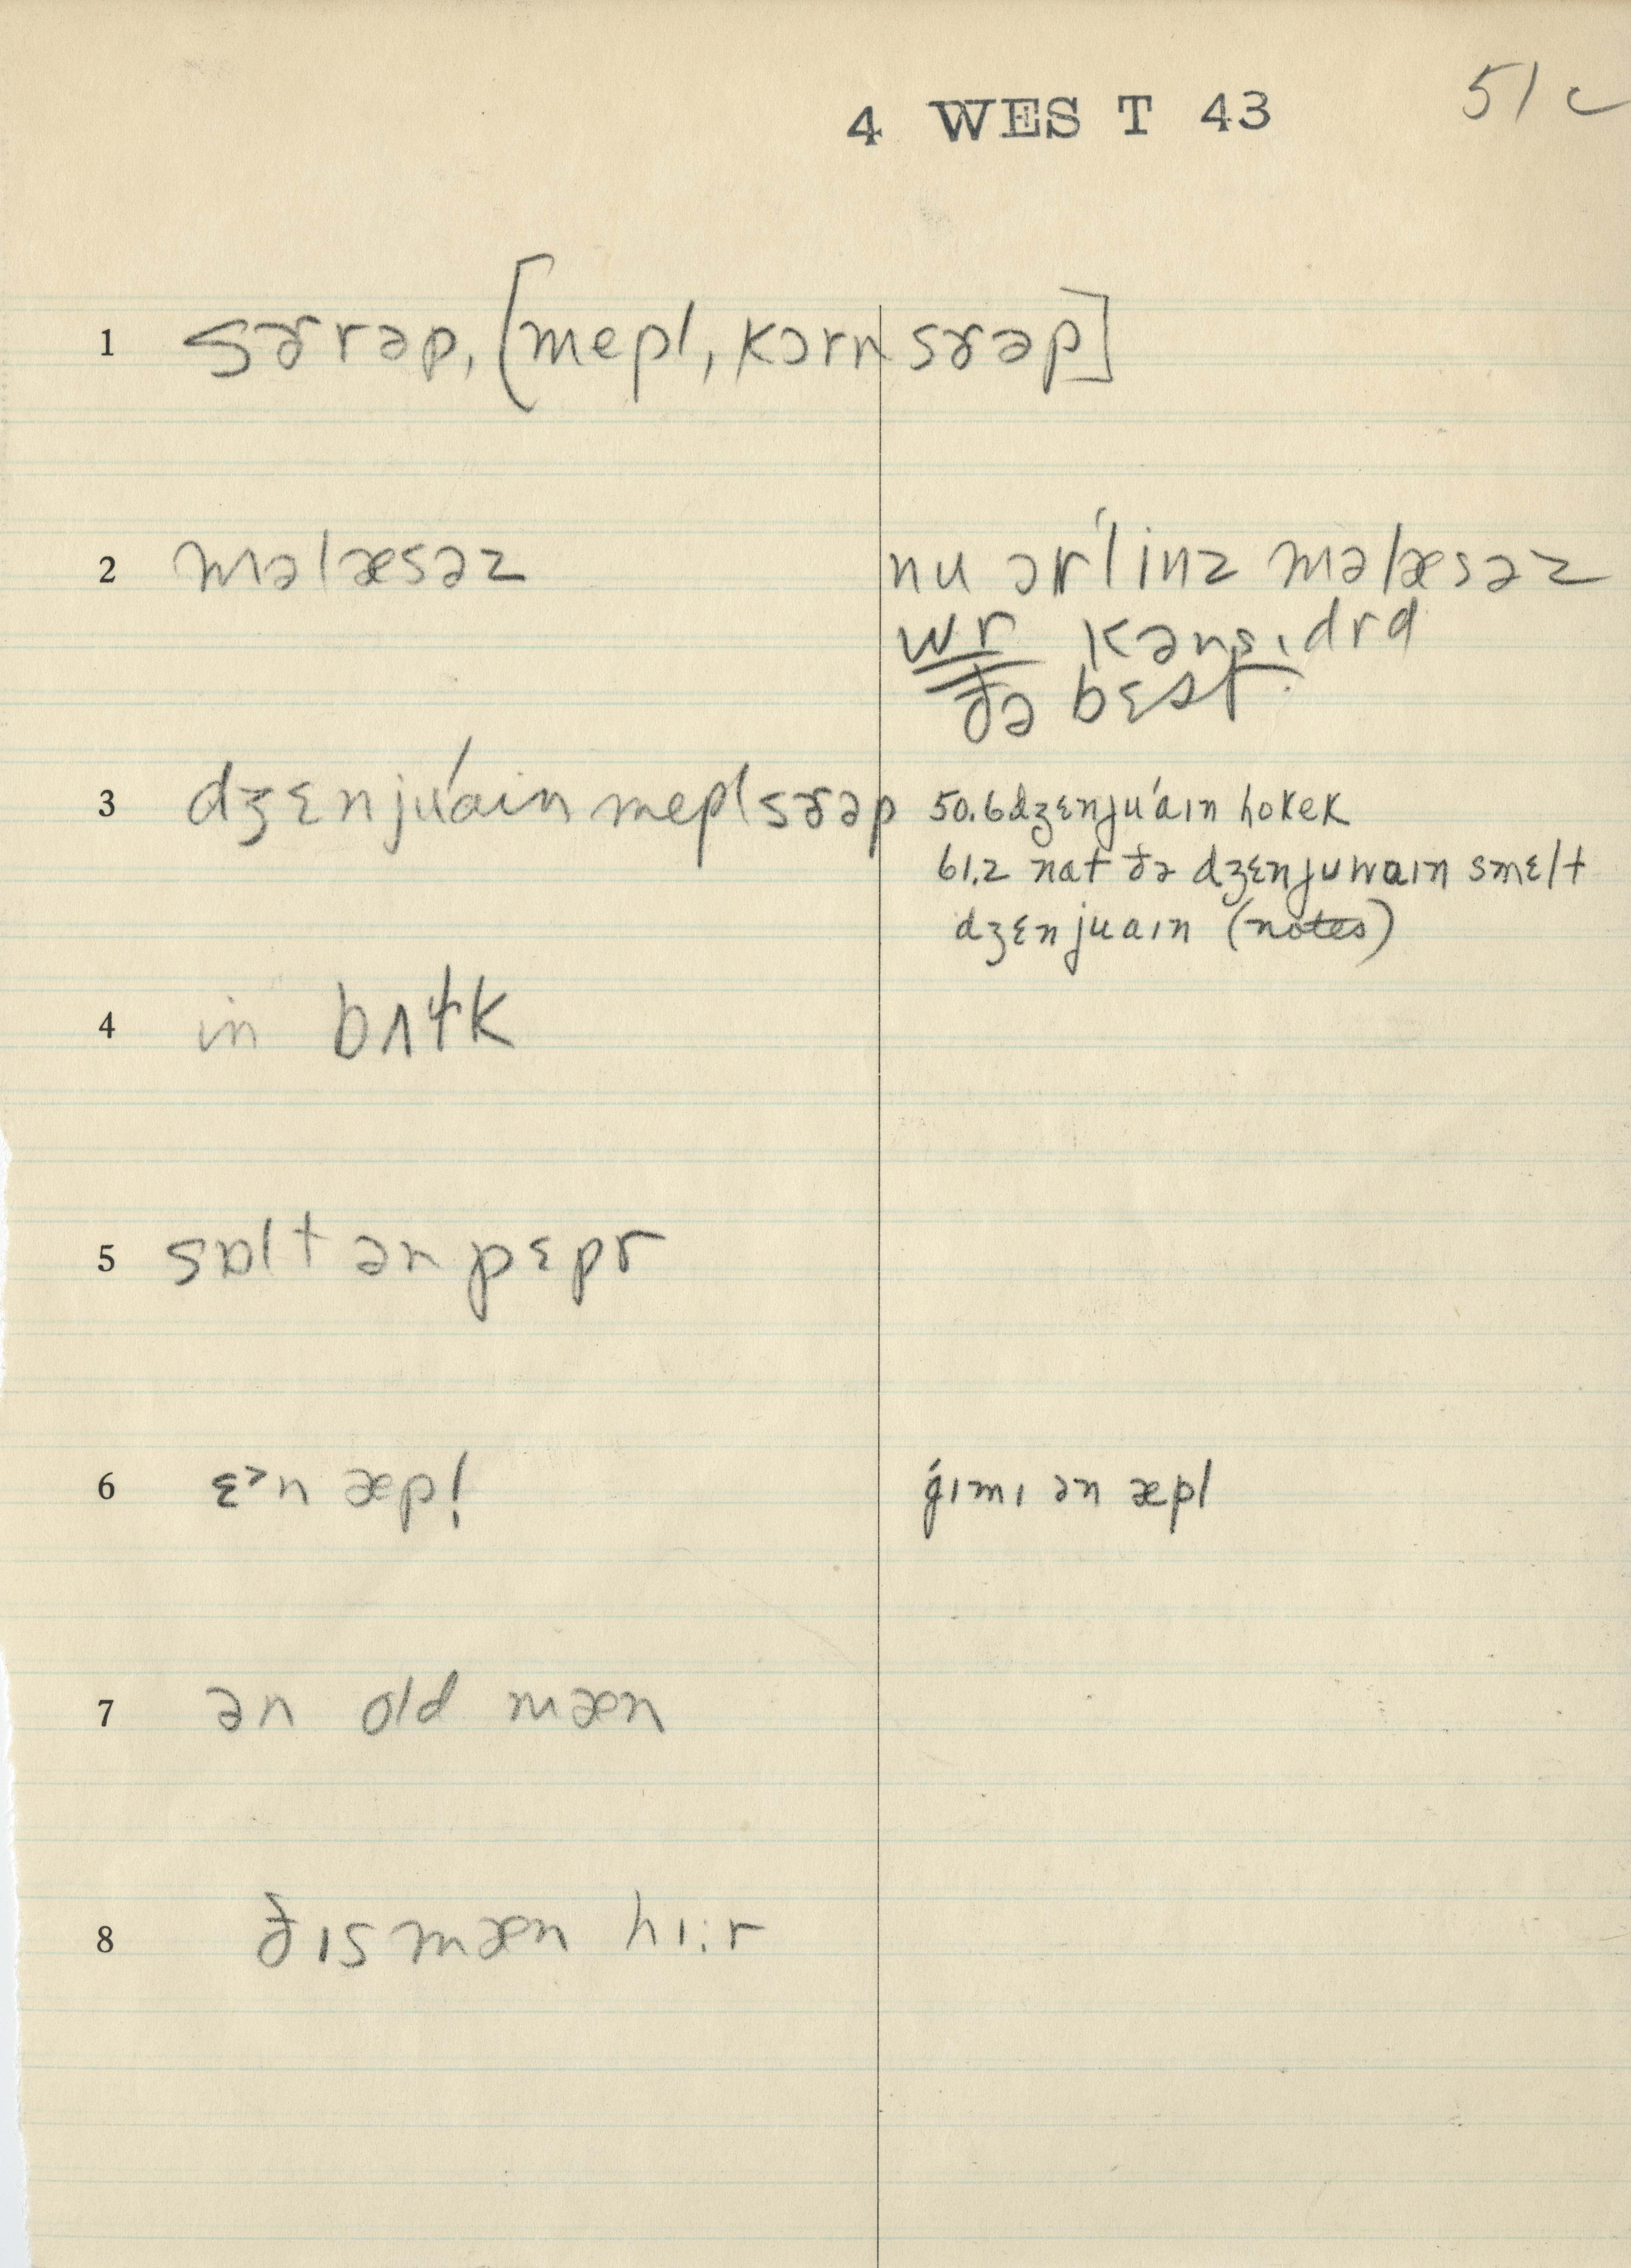 4 WEST 43
51c
1 sɚrəp, [mepl, kɔrn sɚəp]
2 məlæsəz
nu ɔr'linz məlæsəz
wr kənsɪdrd
ðə bɛst
3 dʒɛnju'ain mepl sɚəp
50.6 dʒɛnju'aɪn hokek
61.2 nat ðə dʒɛnjuwaɪn smɛlt
dʒɛnjuaɪn (notes)
4 in bʌɫk
5 sɒlt ən pɛpr
6 ɛ>n æpl
gɪmɪ ən æpl
7 ən old mæn
8 ðɪs mæn hɪ:r